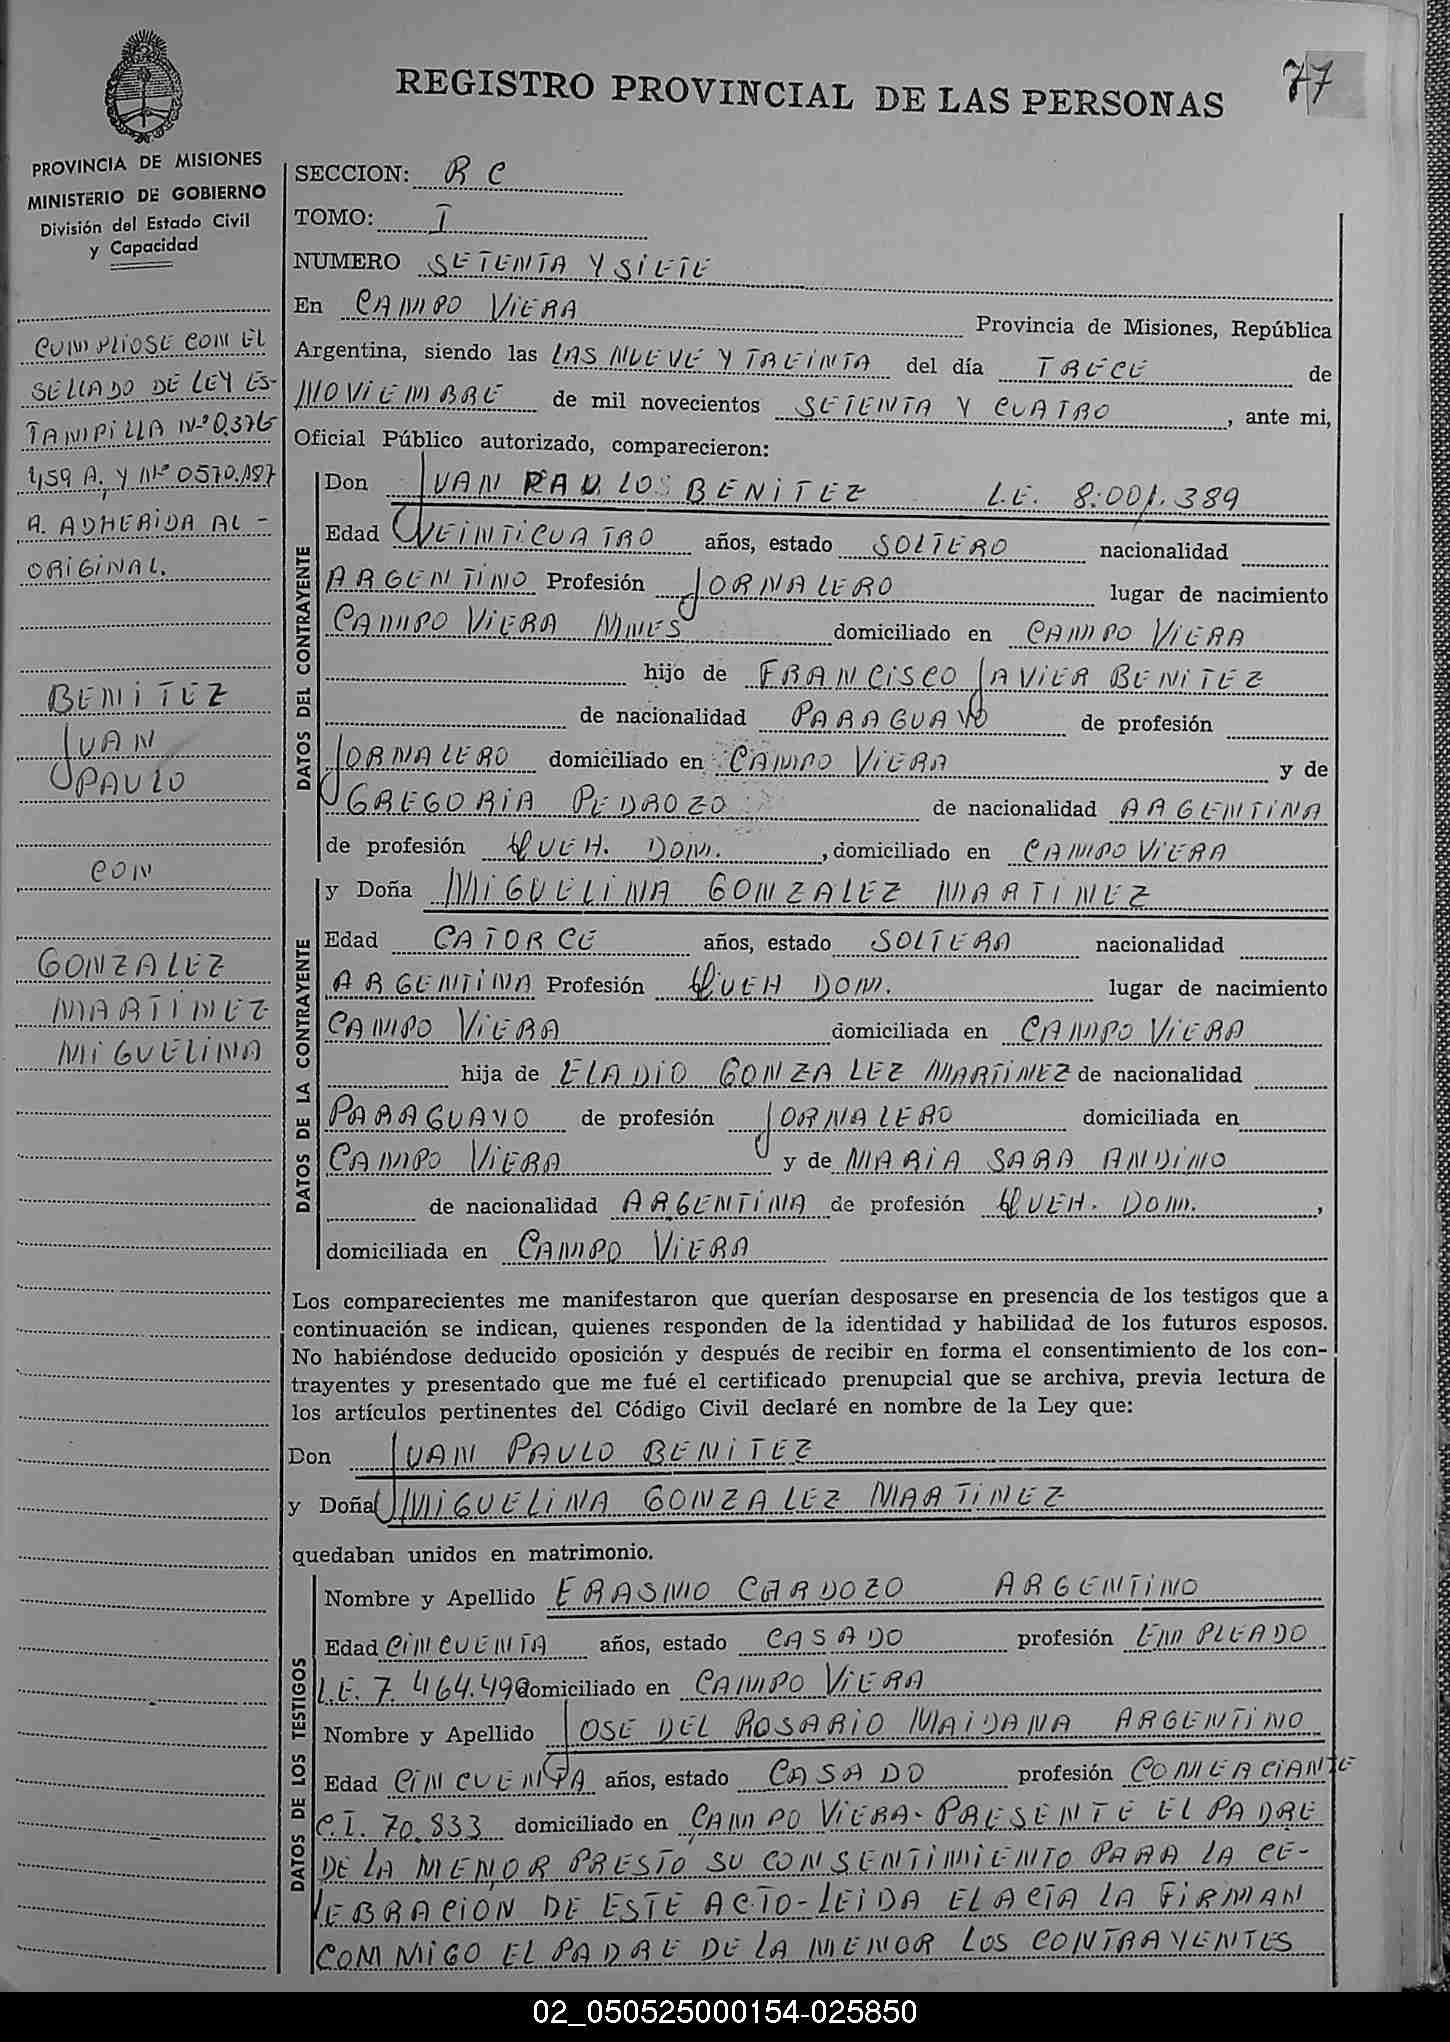 REGISTRO PROVINCIAL DE LAS PERSONAS
77
PROVINCIA DE MISIONES
MINISTERIO DE GOBIERNO
División del Estado Civil
y Capacidad
CUMPLIOSE CON EL
SELLADO DE LEY ES-
TAMPILLA Nº 0.376
459 A. Y Nº 0570.187
A. ADHERIDA AL -
ORIGINAL.
BENITEZ
JUAN
PAULO
CON
GONZALEZ
MARTINEZ
MIGUELINA
SECCION: R C
TOMO: I
NUMERO SETENTA Y SIETE
En CAMPO VIERA Provincia de Misiones, República
Argentina, siendo las LAS NUEVE Y TREINTA del día TRECE de
NOVIEMBRE de mil novecientos SETENTA Y CUATRO, ante mi,
Oficial Público autorizado, comparecieron:
DATOS DEL CONTRAYENTE
Don JUAN PAULO BENITEZ L.E. 8.001.389
Edad VEINTICUATRO años, estado SOLTERO nacionalidad
ARGENTINO Profesión JORNALERO lugar de nacimiento
CAMPO VIERA MNES domiciliado en CAMPO VIERA
hijo de FRANCISCO JAVIER BENITEZ
de nacionalidad PARAGUAYO de profesión
JORNALERO domiciliado en CAMPO VIERA y de
GREGORIA PEDROZO de nacionalidad ARGENTINA
de profesión QUEH. DOM. , domiciliado en CAMPO VIERA
DATOS DE LA CONTRAYENTE
y Doña MIGUELINA GONZALEZ MARTINEZ
Edad CATORCE años, estado SOLTERA nacionalidad
ARGENTINA Profesión QUEH DOM. lugar de nacimiento
CAMPO VIERA domiciliada en CAMPO VIERA
hija de ELADIO GONZALEZ MARTINEZ de nacionalidad
PARAGUAYO de profesión JORNALERO domiciliada en
CAMPO VIERA y de MARIA SARA ANDINO
de nacionalidad ARGENTINA de profesión QUEH. DOM. ,
domiciliada en CAMPO VIERA
Los comparecientes me manifestaron que querían desposarse en presencia de los testigos que a
continuación se indican, quienes responden de la identidad y habilidad de los futuros esposos.
No habiéndose deducido oposición y después de recibir en forma el consentimiento de los con-
trayentes y presentado que me fué el certificado prenupcial que se archiva, previa lectura de
los artículos pertinentes del Código Civil declaré en nombre de la Ley que:
Don JUAN PAULO BENITEZ
y Doña MIGUELINA GONZALEZ MARTINEZ
quedaban unidos en matrimonio.
DATOS DE LOS TESTIGOS
Nombre y Apellido ERASMO CARDOZO ARGENTINO
Edad CINCUENTA años, estado CASADO profesión EMPLEADO
L.E. 7.464.490 domiciliado en CAMPO VIERA
Nombre y Apellido JOSE DEL ROSARIO MAIDANA ARGENTINO
Edad CINCUENTA años, estado CASADO profesión COMERCIANTE
C.I. 70.833 domiciliado en CAMPO VIERA-PRESENTE EL PADRE
DE LA MENOR PRESTO SU CONSENTIMIENTO PARA LA CE-
LEBRACION DE ESTE ACTO-LEIDA EL ACTA LA FIRMAN
CONMIGO EL PADRE DE LA MENOR LOS CONTRAYENTES
02_050525000154-025850